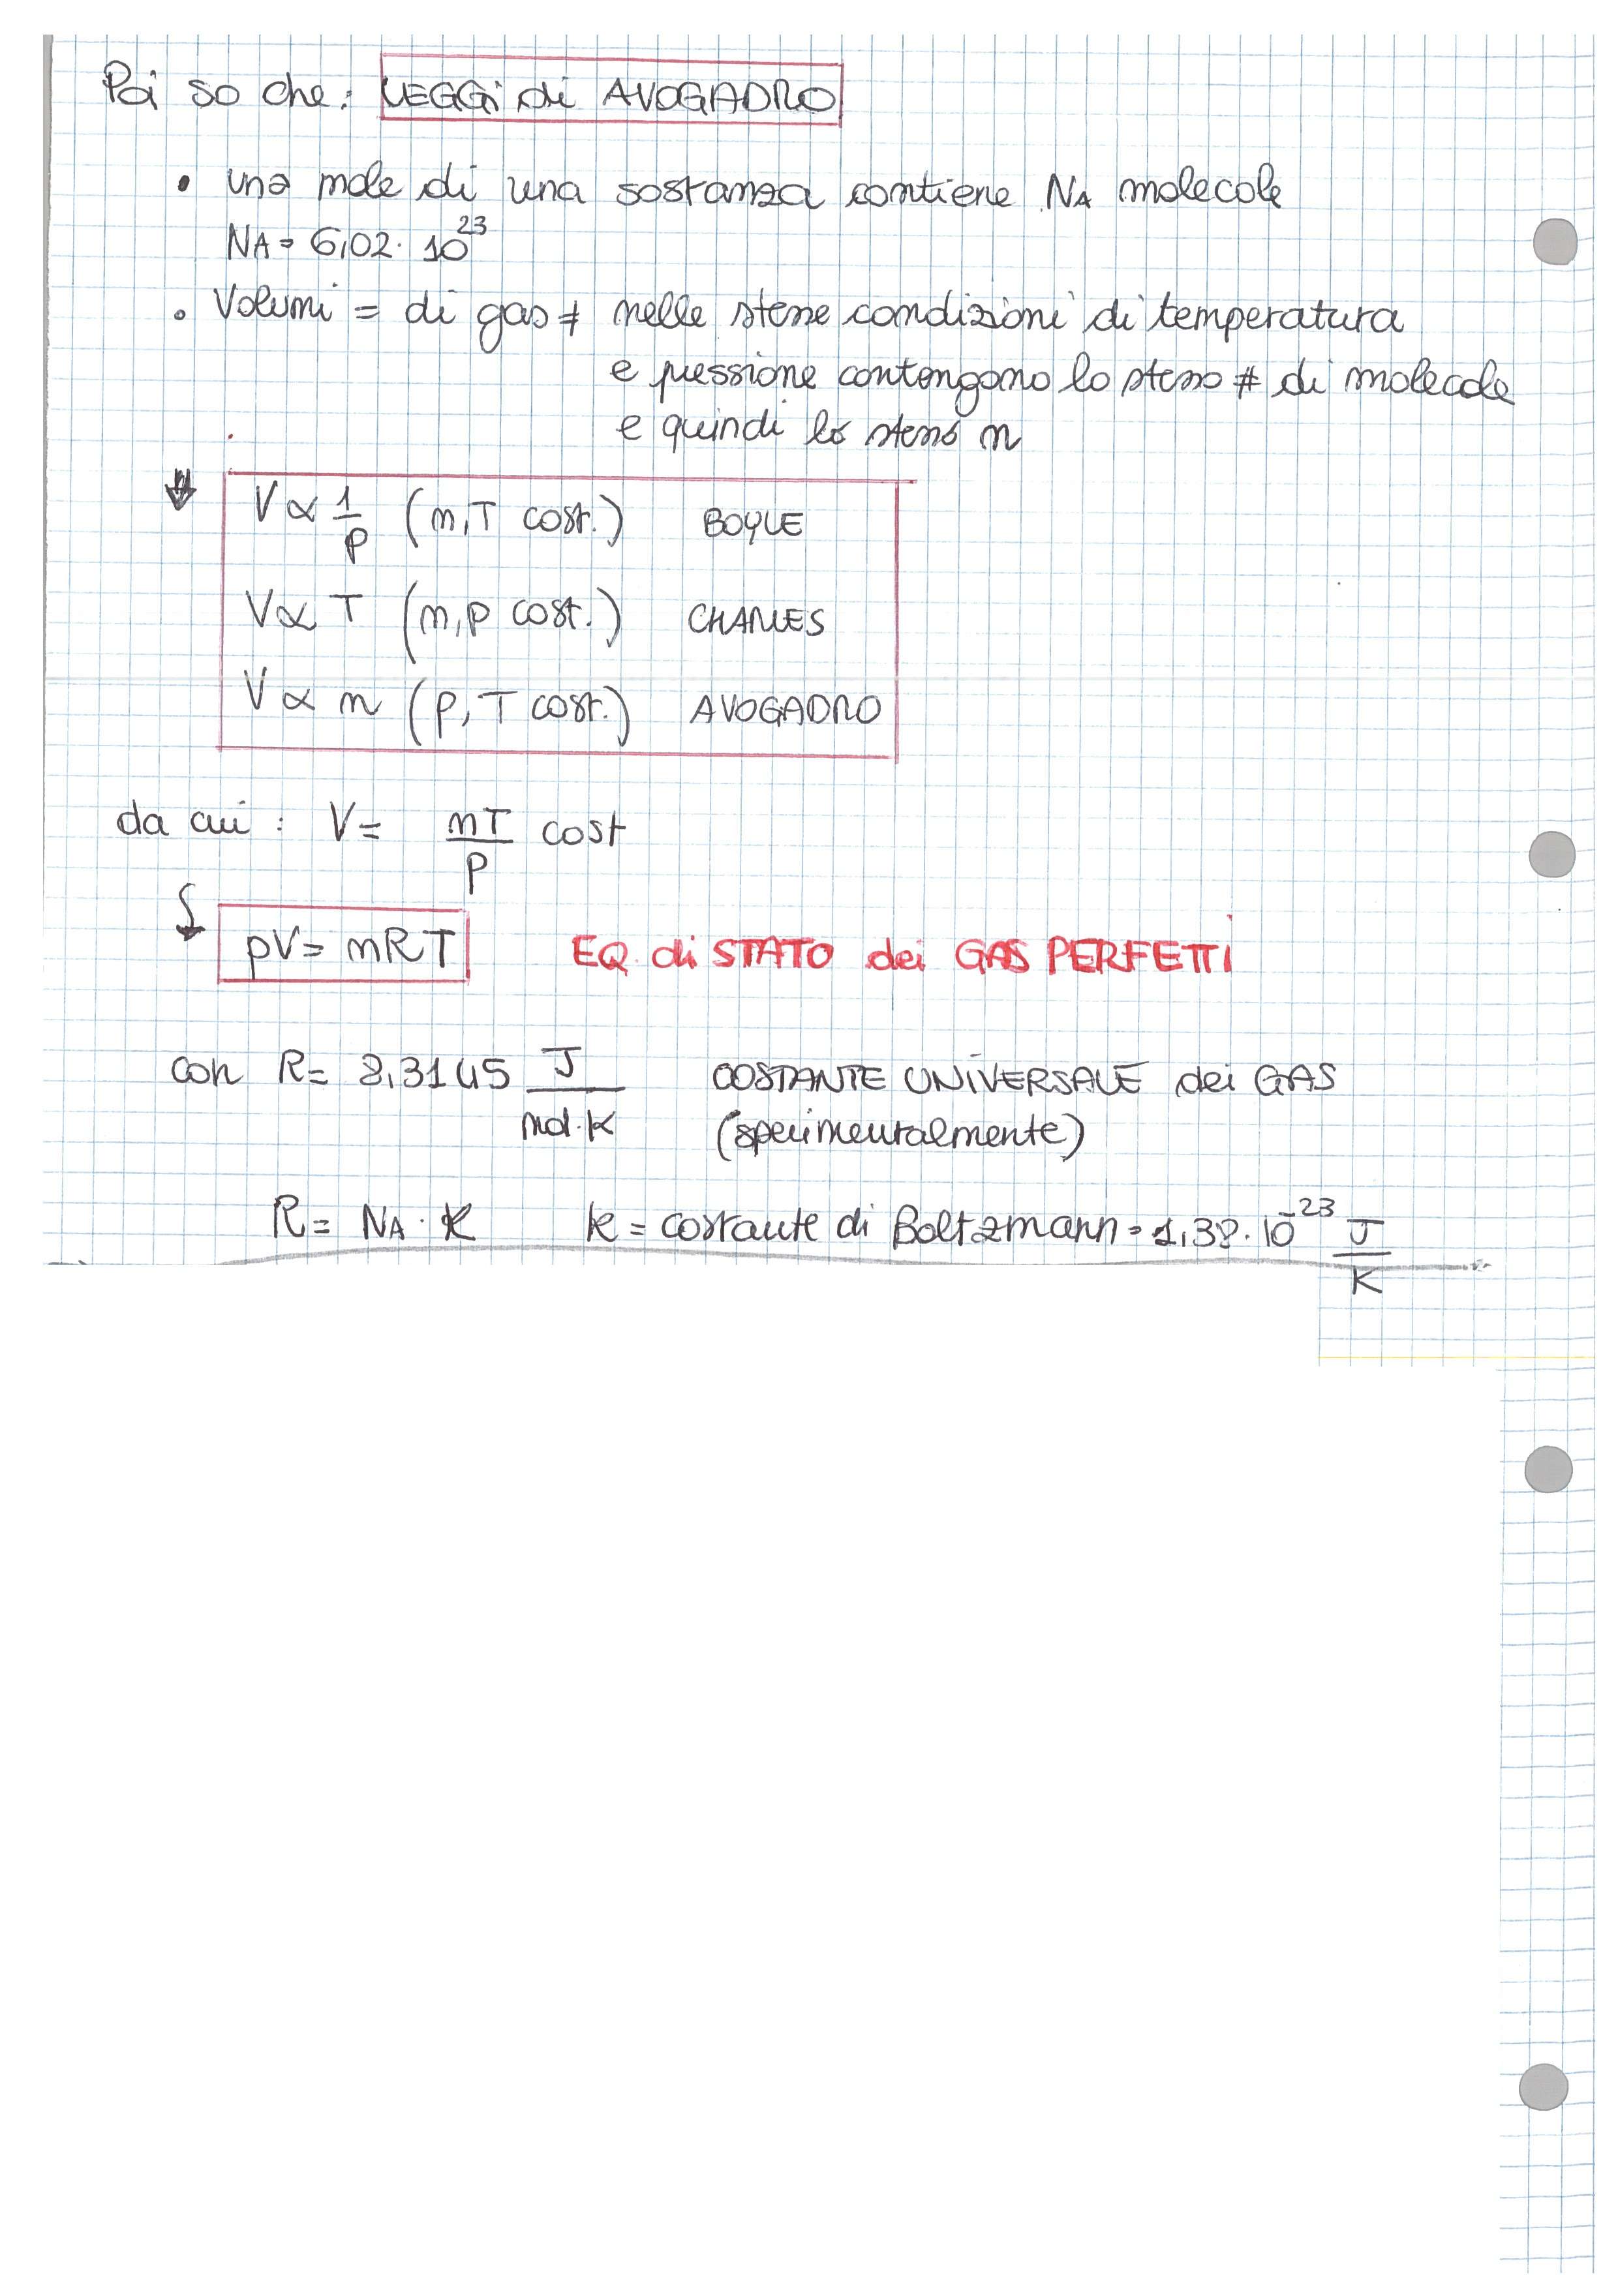 Poi so che: LEGGI di AVOGADRO
• una mole di una sostanza contiene NA molecole
NA = 6,02 · 10²³
• Volumi = di gas ≠ nelle stesse condizioni di temperatura
e pressione contengono lo stesso # di molecole
e quindi lo stesso n
⇓ V ∝ 1/p (n, T cost.) BOYLE
V ∝ T (n, p cost.) CHARLES
V ∝ n (p, T cost.) AVOGADRO
da cui : V = nT/p cost
pV = nRT EQ. di STATO dei GAS PERFETTI
con R = 8,3145 J/mol·K COSTANTE UNIVERSALE dei GAS
(sperimentalmente)
R = NA · K K = costante di Boltzmann = 1,38 · 10⁻²³ J/K